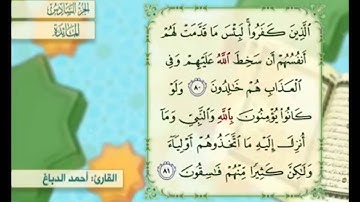 الجزء السادس
المائدة
ٱلَّذِينَ كَفَرُوا۟ ۚ لَبِئْسَ مَا قَدَّمَتْ لَهُمْ
أَنفُسُهُمْ أَن سَخِطَ ٱللَّهُ عَلَيْهِمْ وَفِى
ٱلْعَذَابِ هُمْ خَـٰلِدُونَ ٨٠ وَلَوْ
كَانُوا۟ يُؤْمِنُونَ بِٱللَّهِ وَٱلنَّبِىِّ وَمَآ
أُنزِلَ إِلَيْهِ مَا ٱتَّخَذُوهُمْ أَوْلِيَآءَ
وَلَـٰكِنَّ كَثِيرًا مِّنْهُمْ فَـٰسِقُونَ ٨١
القارئ: أحمد الدباغ